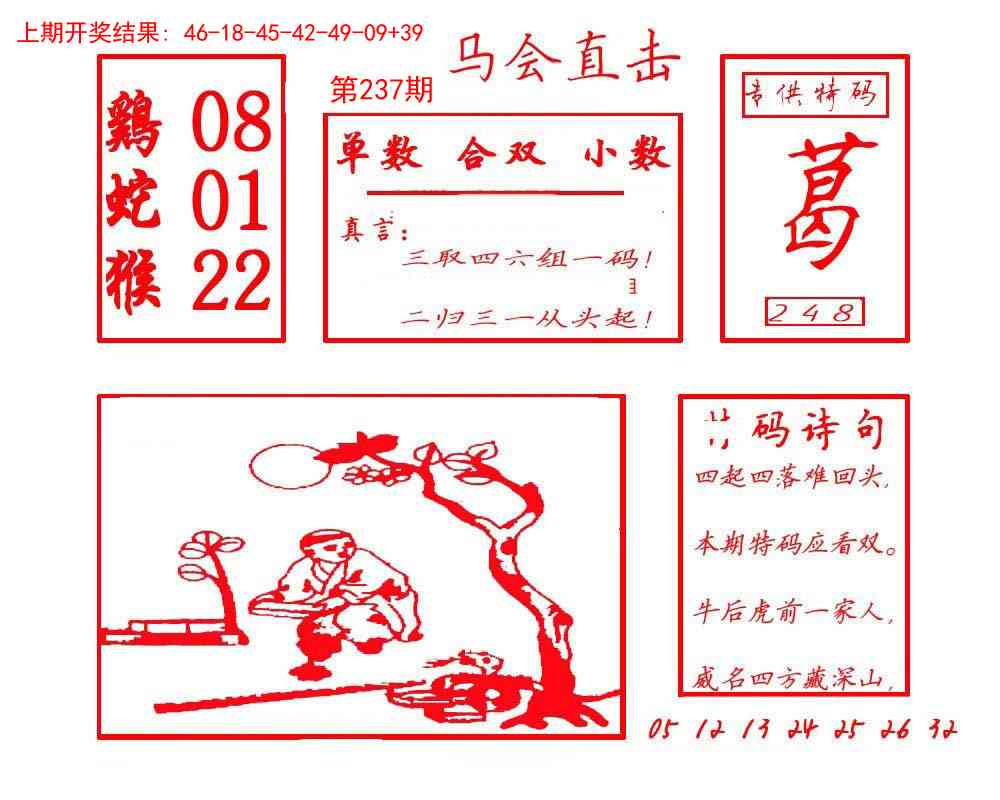 上期开奖结果：46-18-45-42-49-09+39
马会直击
第237期
鷄 08
蛇 01
猴 22
单数 合双 小数
真言：
三取四六组一码！
二归三一从头起！
专供特码
葛
248
码诗句
四起四落难回头，
本期特码应看双。
牛后虎前一家人，
威名四方藏深山，
05 12 13 24 25 26 32